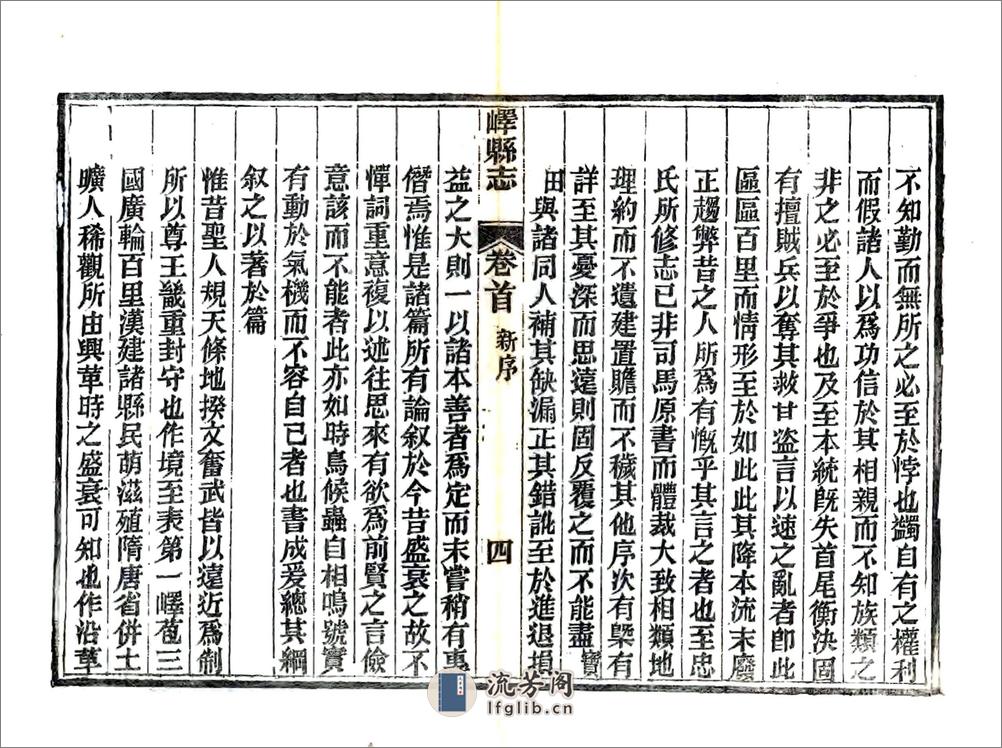 不知勤而無所之必至於悖也蠲自有之權利
而假諸人以爲功信於其相親而不知族類之
非之必至於爭也及至本統旣失首尾衡決固
有擅賊兵以奪其救甘盜言以速之亂者卽此
區區百里而情形至於如此此其降本流末廢
正趨弊昔之人所爲有慨乎其言之者也至忠
氏所修志已非司馬原書而體裁大致相類地
理約而不遺建置贍而不穢其他序次有槩有
詳至其憂深而思遠則固反覆之而不能盡寶
田與諸同人補其缺漏正其錯訛至於進退損
嶧縣志 卷首 新序 四
益之大則一以諸本善者爲定而未嘗稍有專
僭焉惟是諸篇所有論叙於今昔盛衰之故不
憚詞重意複以述往思來有欲爲前賢之言儉
意該而不能者此亦如時鳥候蟲自相鳴號實
有動於氣機而不容自已者也書成爰總其綱
叙之以著於篇
惟昔聖人規天條地揆文奮武皆以遠近爲制
所以尊王畿重封守也作境至表第一嶧苞三
國廣輪百里漢建諸縣民萌滋殖隋唐省併土
曠人稀觀所由興革時之盛衰可知也作沿革
流芳閣
lfglib.cn